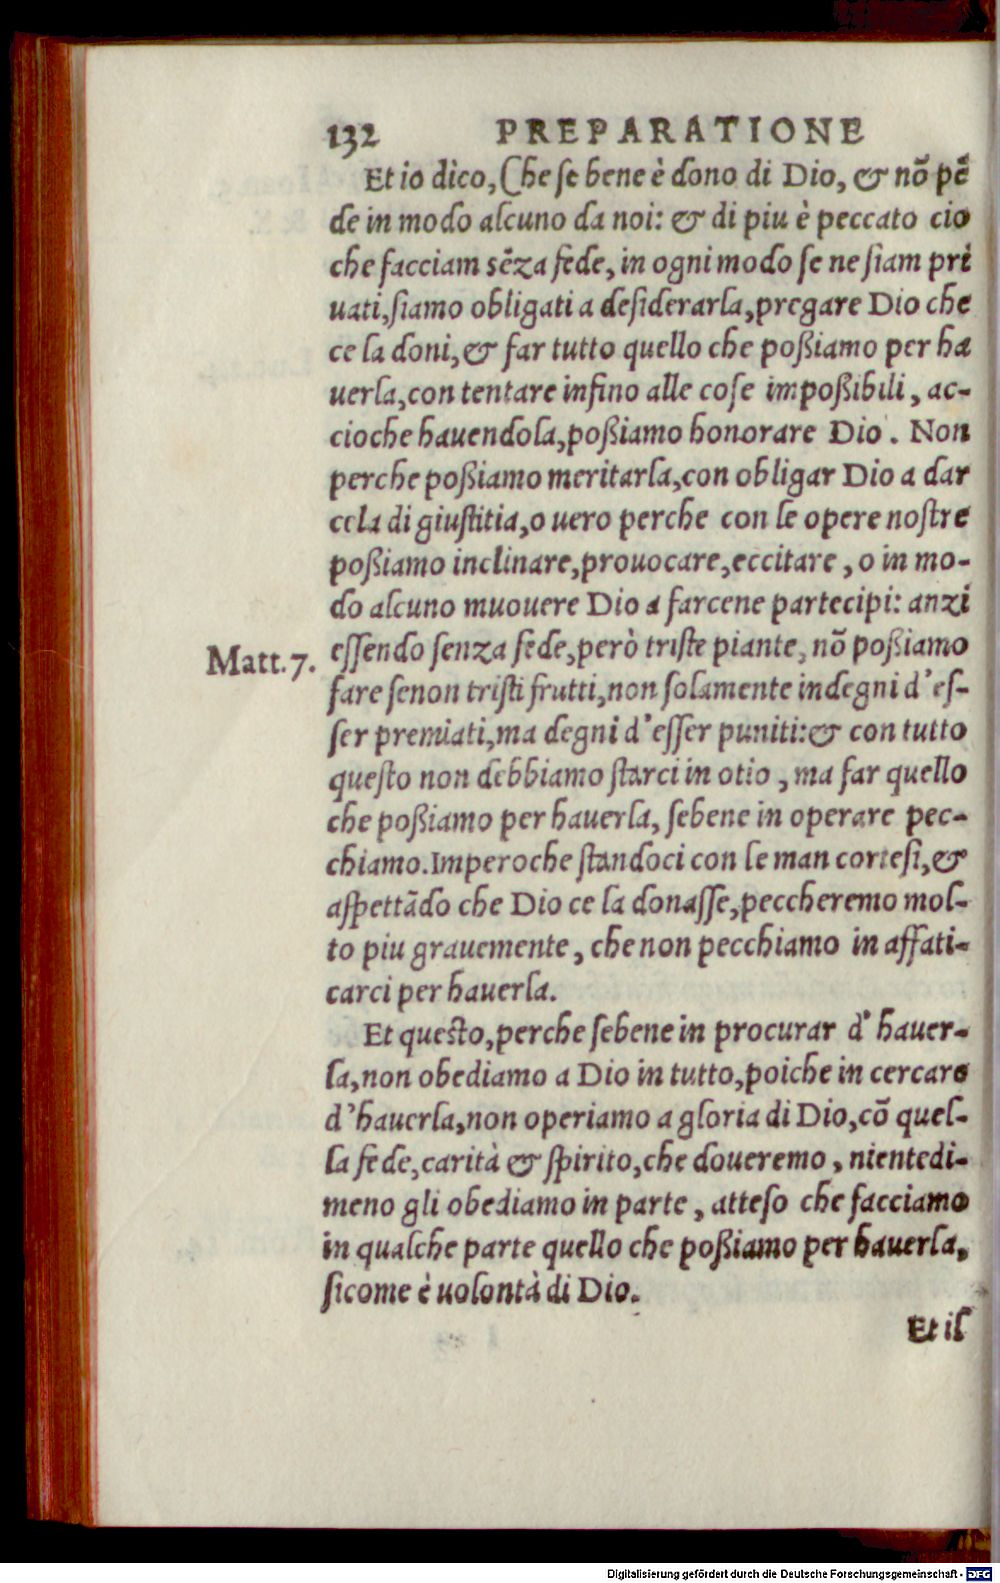 132 PREPARATIONE
Et io dico, Che se bene è dono di Dio, & nõ pẽ
de in modo alcuno da noi: & di piu è peccato cio
che facciam sẽza fede, in ogni modo se ne siam pri
uati, siamo obligati a desiderarla, pregare Dio che
ce la doni, & far tutto quello che poßiamo per ha
uerla, con tentare infino alle cose impoßibili, ac-
cioche hauendola, poßiamo honorare Dio. Non
perche poßiamo meritarla, con obligar Dio a dar
cela di giustitia, o uero perche con le opere nostre
poßiamo inclinare, prouocare, eccitare, o in mo-
do alcuno muouere Dio a farcene partecipi: anzi
Matt. 7. essendo senza fede, però triste piante, nõ poßiamo
fare senon tristi frutti, non solamente indegni d'es-
ser premiati, ma degni d'esser puniti: & con tutto
questo non debbiamo starci in otio, ma far quello
che poßiamo per hauerla, sebene in operare pec-
chiamo. Imperoche standoci con le man cortesi, &
aspettãdo che Dio ce la donasse, peccheremo mol-
to piu grauemente, che non pecchiamo in affati-
carci per hauerla.
Et questo, perche sebene in procurar d' hauer-
la, non obediamo a Dio in tutto, poiche in cercare
d'hauerla, non operiamo a gloria di Dio, cõ quel-
la fede, carità & spirito, che doueremo, nientedi-
meno gli obediamo in parte, atteso che facciamo
in qualche parte quello che poßiamo per hauerla,
sicome è uolontà di Dio.
Et il
Digitalisierung gefördert durch die Deutsche Forschungsgemeinschaft - DFG